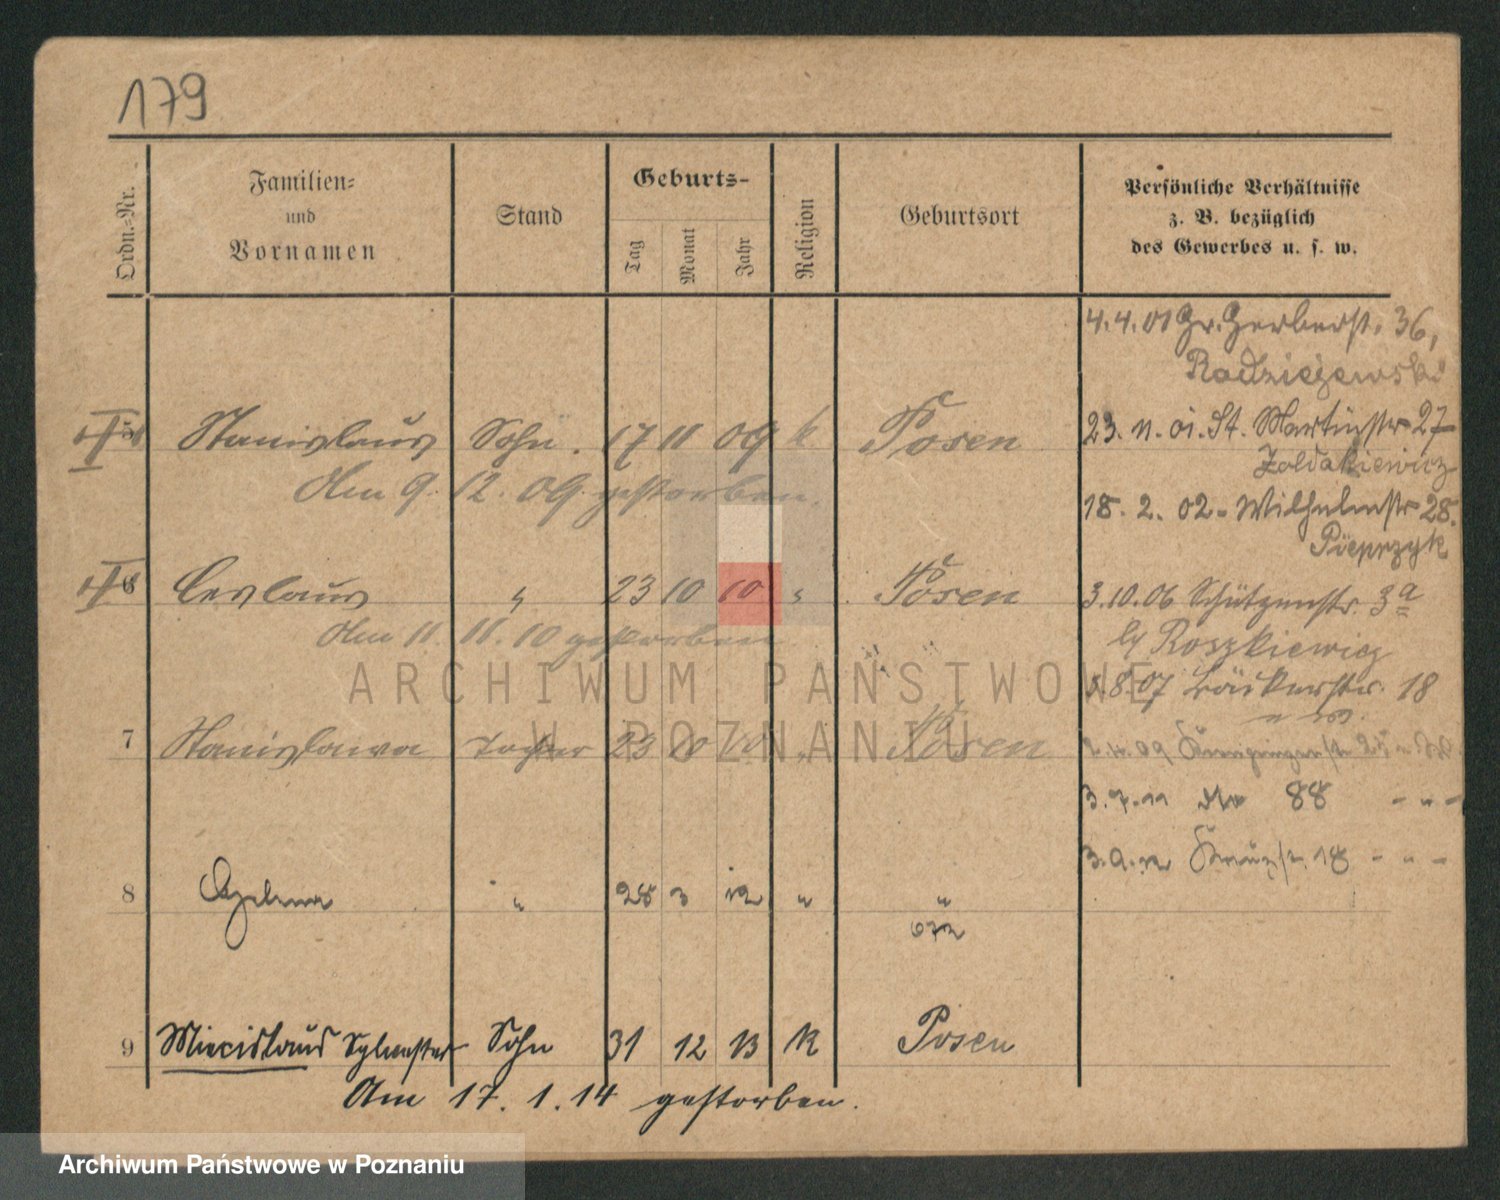 179
Ordn.-Nr.
Familien-
und
Vornamen
Stand
Geburts-
Tag
Monat
Jahr
Religion
Geburtsort
Persönliche Verhältnisse
z. B. bezüglich
des Gewerbes u. s. w.
4.4.01 Gr. Gerberstr. 36,
Radziejewski
5 Stanislaus Sohn. 17 11 09 k Posen
23. 11. 01. St. Martinstr 27
Zoldakiewicz
Am 9. 12. 09 gestorben.
18. 2. 02. Wilhelmstr 28.
Pieprzyk
6 Ceslaus " 23 10 10 " Posen
3.10.06 Schützenstr. 3a
Am 11. 11. 10 gestorben
by Roszkiewicz
8.07 Bäckerstr. 18
ARCHIWUM PAŃSTWOWE
W POZNANIU
7 Stanislawa Tochter 23 10 Posen
3.7.11 88 - " -
3.9.12 Kreuzstr. 18 - " -
8 " 28 3 12 " "
9 Miecislaus Sylvester Sohn 31 12 13 k Posen
Am 17. 1. 14 gestorben.
Archiwum Państwowe w Poznaniu